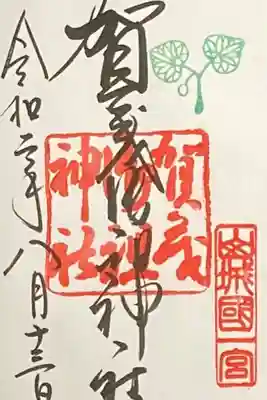 山城國一宮
賀茂御祖神社
賀茂御祖神社
令和二年八月十三日